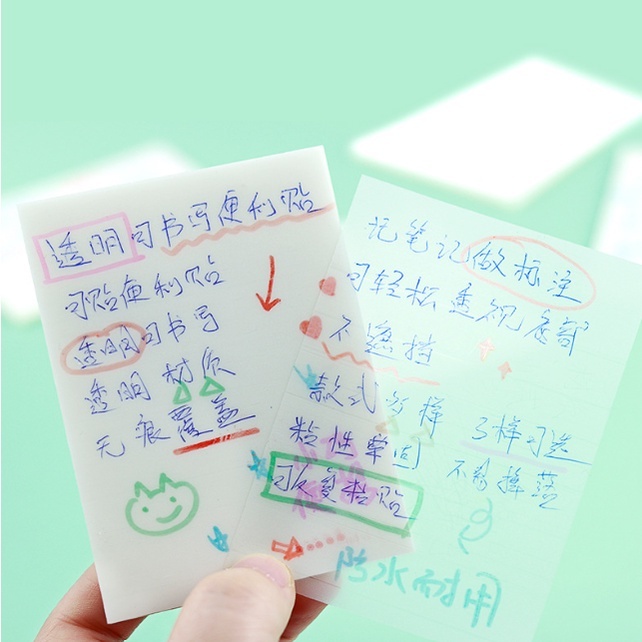 透明可书写便利贴
可贴便利贴
透明可书写
透明材质
无痕覆盖
记笔记做标注
可轻松透视底部
不遮挡
款式多样 多样可选
粘性牢固 不易掉落
可反复粘贴
防水耐用